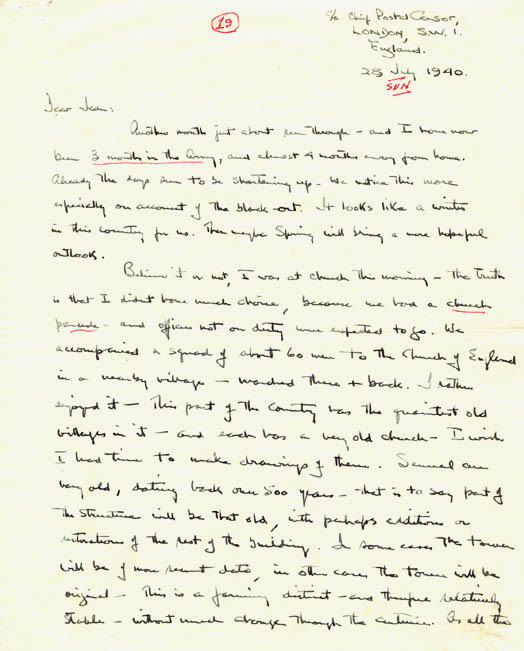 19
c/o Chief Postal Censor,
LONDON, S.W. 1.
England.
28 July 1940.
SUN
Dear Jean:
Another month just about run through - and I have now
been 3 months in the Army, and almost 4 months away from home.
Already the days seem to be shortening up - we notice this more
especially on account of the black-out. It looks like a winter
in this country for us. Then maybe Spring will bring a more hopeful
outlook.
Believe it or not, I was at church this morning - the truth
is that I didn't have much choice, because we had a church
parade - and officers not on duty were expected to go. We
accompanied a squad of about 60 men to the Church of England
in a nearby village - marched there + back. I rather
enjoyed it - This part of the country has the quaintest old
villages in it - and each has a very old church - I wish
I had time to make drawings of them. Several are
very old, dating back over 500 years - that is to say part of
the structure will be that old, with perhaps additions or
restorations of the rest of the building. In some cases the tower
will be of more recent date, in other cases the tower will be
original - This is a farming district - and therefore relatively
stable - without much change through the centuries. As all the